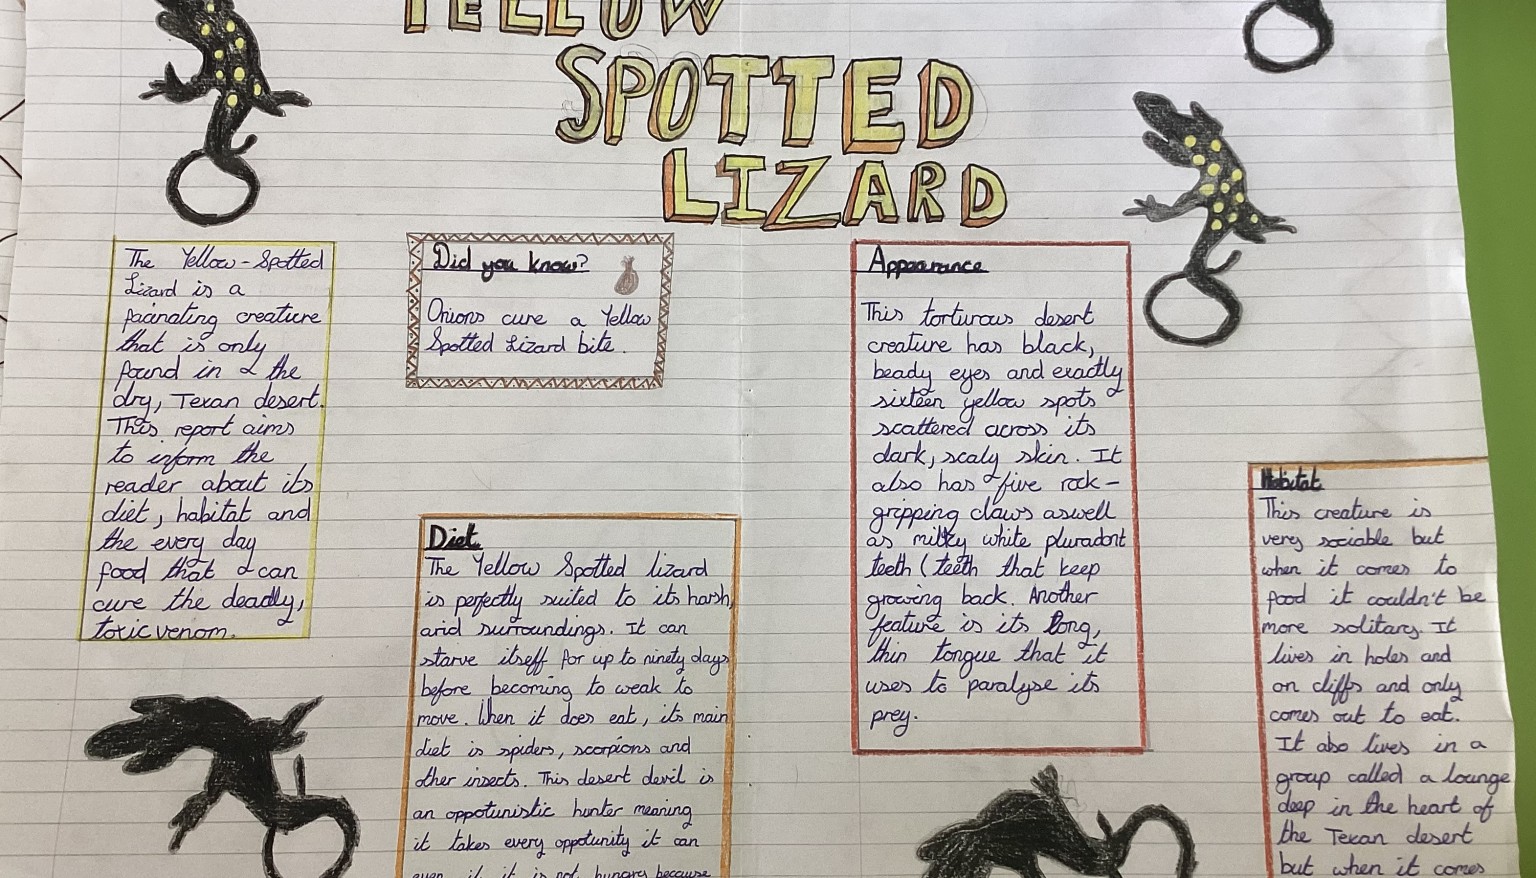 YELLOW
SPOTTED
LIZARD
The Yellow-Spotted
Lizard is a
facinating creature
that is only
found in the
dry, Texan desert.
This report aims
to inform the
reader about its
diet, habitat and
the every day
food that can
cure the deadly,
toxic venom.
Did you know?
Onions cure a Yellow
Spotted Lizard bite.
Diet
The Yellow Spotted lizard
is perfectly suited to its harsh,
arid surroundings. It can
starve itself for up to ninety days
before becoming to weak to
move. When it does eat, its main
diet is spiders, scorpions and
other insects. This desert devil is
an oppotunistic hunter meaning
it takes every oppotunity it can
even if it is not hungry because
Appearance
This torturous desert
creature has black,
beady eyes and exactly
sixteen yellow spots
scattered across its
dark, scaly skin. It
also has five rock-
gripping claws aswell
as milky white pluradont
teeth (teeth that keep
growing back. Another
feature is its long,
thin tongue that it
uses to paralyse its
prey.
Habitat
This creature is
very sociable but
when it comes to
food it couldn't be
more solitary. It
lives in holes and
on cliffs and only
comes out to eat.
It also lives in a
group called a lounge
deep in the heart of
the Texan desert
but when it comes